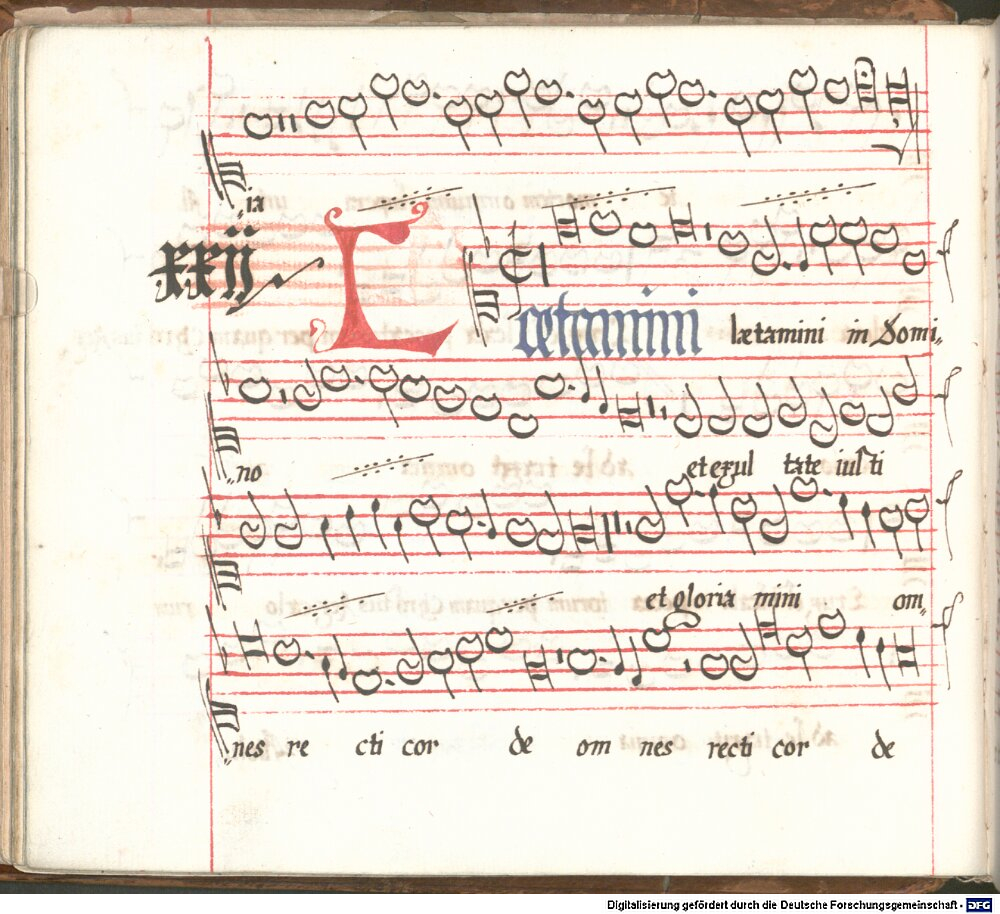 ia
xxij
Lætamini lætamini in Domi„
„no et exul tate iusti
et gloria mini om„
„nes re cti cor de om nes recti cor de
Digitalisierung gefördert durch die Deutsche Forschungsgemeinschaft - DFG